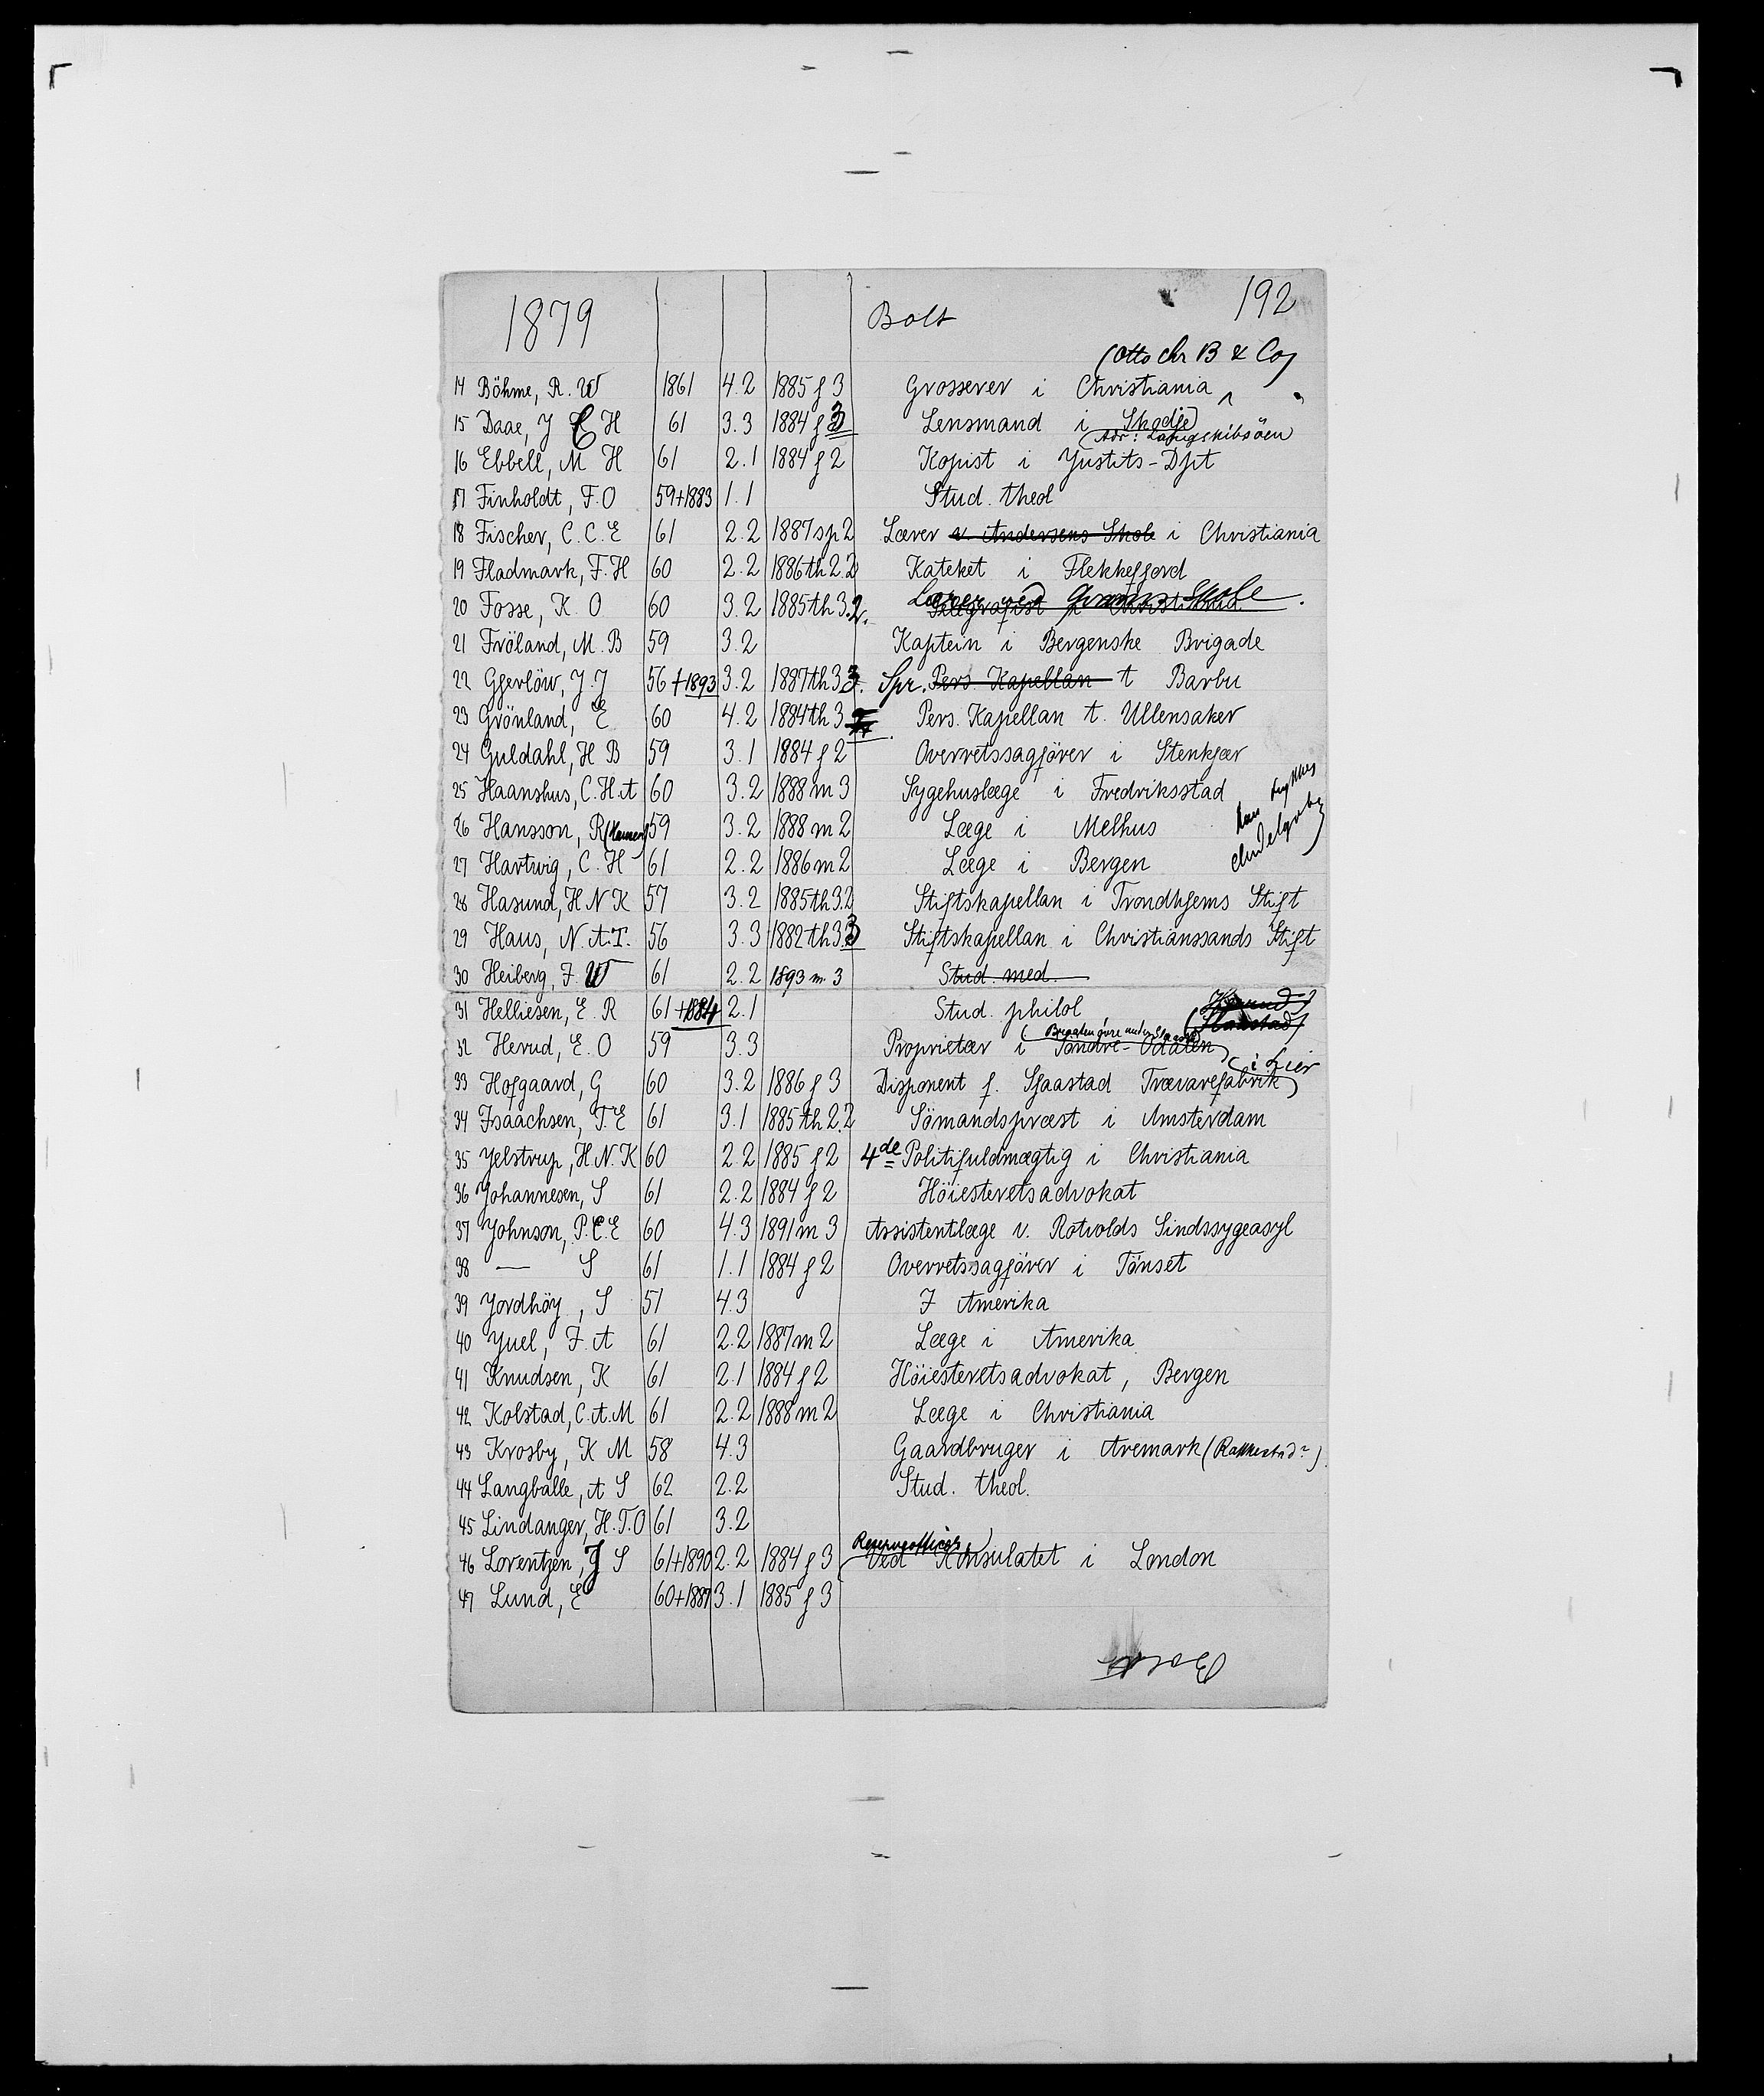 1879 Bolt 192
(Otto Chr B & Co)
14 Böhme, R. W 1861 4.2 1885 f 3 Grosserer i Christiania
15 Daae, J C H 61 3.3 1884 f 3 Lensmand i Skodje
(Adr: Langskibsöen)
16 Ebbell, M H 61 2.1 1884 f 2 Kopist i Justits-Dpt
17 Finholdt, F. O 59+1883 1.1 Stud. theol
18 Fischer, C. C. E 61 2.2 1887 sp 2 Lærer v. Andersens Skole i Christiania
19 Fladmark, F. H 60 2.2 1886 th 2.2 Kateket i Flekkefjord
20 Fosse, K. O 60 3.2 1885 th 3.2. Lærer ved Skole.
21 Fröland, M. B 59 3.2 Kaptein i Bergenske Brigade
22 Gjerlöw, J. J 56 +1893 3.2 1887 th 3.3. Spr. Pers. Kapellan t Barbu
23 Grönland, E 60 4.2 1884 th 3 Pers. Kapellan t. Ullensaker
24 Guldahl, H B 59 3.1 1884 f 2 Overretssagförer i Stenkjær
25 Haanshus, C. H. A 60 3.2 1888 m 3 Sygehuslæge i Fredriksstad
26 Hansson, R (Hansen) 59 3.2 1888 m 2 Læge i Melhus
27 Hartwig, C. H 61 2.2 1886 m 2 Læge i Bergen
28 Hasund, H N K 57 3.2 1885 th 3.2 Stiftskapellan i Trondhjems Stift
29 Haus, N. A. T. 56 3.3 1882 th 3.3 Stiftskapellan i Christianssands Stift
30 Heiberg, J. W 61 2.2 1893 m 3 Stud. med.
31 Helliesen, E. R 61 +1884 2.1 Stud. philol
32 Herud, E. O 59 3.3 Proprietær i Söndre-Odalen
(i Lier
33 Hofgaard, G 60 3.2 1886 f 3 Disponent f. Sjaastad Trævarefabrik)
34 Isaachsen, T. E 61 3.1 1885 th 2.2 Sömandspræst i Amsterdam
35 Jelstrup, H. N. K 60 2.2 1885 f 2 4de Politifuldmægtig i Christiania
36 Johannesen, S 61 2.2 1884 f 2 Höiesteretsadvokat
37 Johnson, P. C. E 60 4.3 1891 m 3 Assistentlæge v. Rotvolds Sindssygeasyl
38 — S 61 1.1 1884 f 2 Overretssagförer i Tönset
39 Jordhöy, S 51 4.3 I Amerika
40 Juel, F. A 61 2.2 1887 m 2 Læge i Amerika
41 Knudsen, K 61 2.1 1884 f 2 Höiesteretsadvokat, Bergen
42 Kolstad, C. A. M 61 2.2 1888 m 2 Læge i Christiania
43 Krosby, K M 58 4.3 Gaardbruger i Aremark (Rakkestad?).
44 Langballe, A S 62 2.2 Stud. theol.
45 Lindanger, H. T. O 61 3.2
Reserveofficer,
46 Lorentzen, J S 61+1890 2.2 1884 f 3 Ved Konsulatet i London
47 Lund, E 60+1887 3.1 1885 f 3